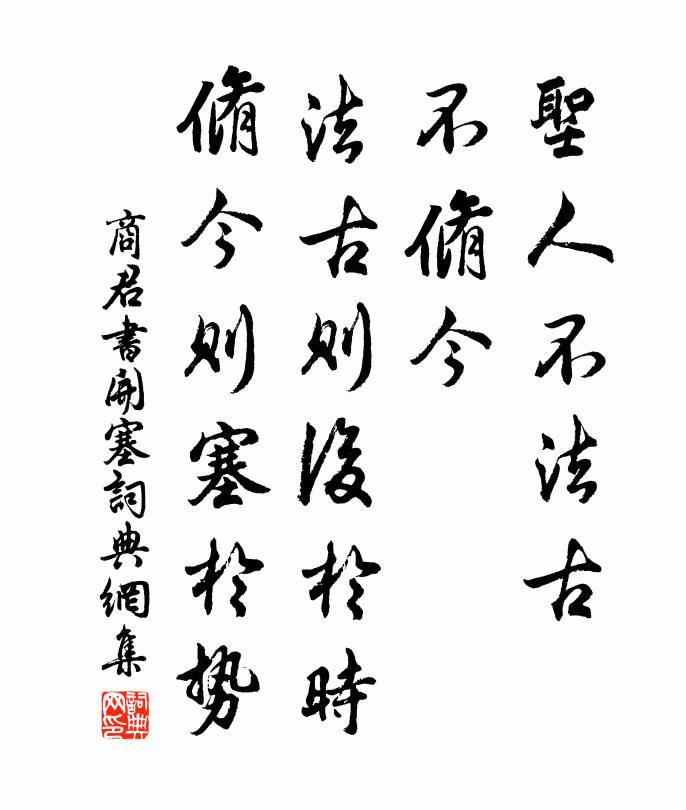 聖人不法古
不脩今
法古則後於時
脩今則塞於勢
商君書開塞詞典網集
詞典網印